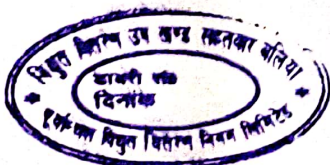 विद्युत वितरण उप खण्ड रसड़ा बलिया
डायरी सं०
दिनांक
पूर्वांचल विद्युत वितरण निगम लिमिटेड